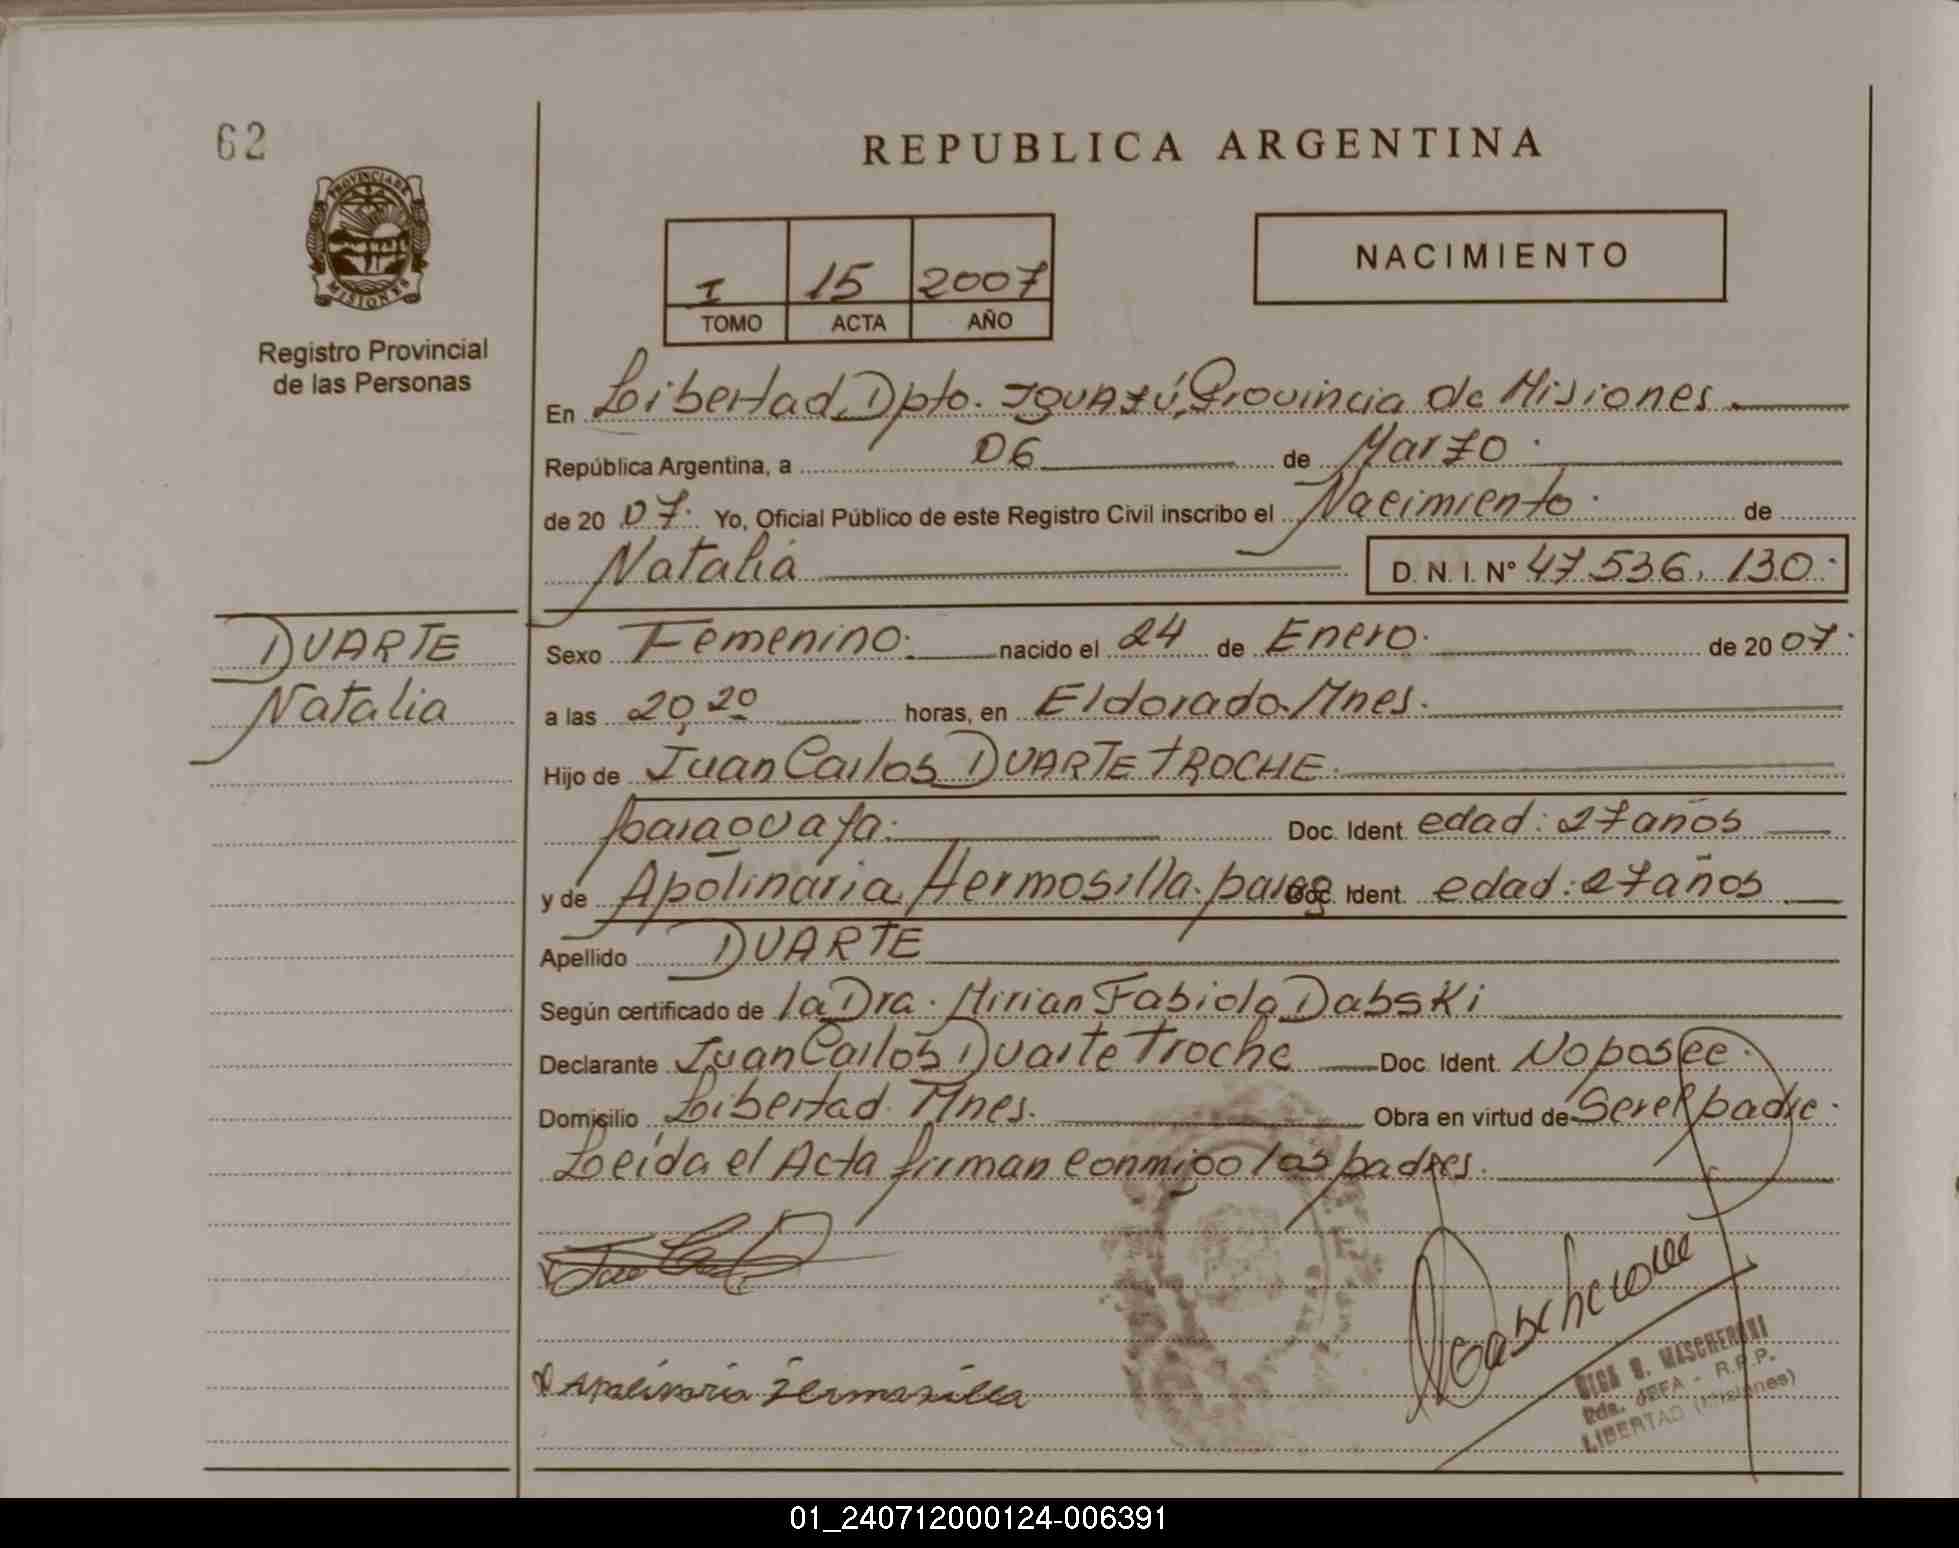 62
REPUBLICA ARGENTINA
PROVINCIA DE
MISIONES
Registro Provincial
de las Personas
I 15 2007
TOMO ACTA AÑO
NACIMIENTO
En Libertad Dpto. Iguazú, Provincia de Misiones.
República Argentina, a 06 de Marzo.
de 20 07. Yo, Oficial Público de este Registro Civil inscribo el Nacimiento. de
Natalia D. N. I. Nº 47.536.130.
DUARTE
Natalia
Sexo Femenino. nacido el 24 de Enero. de 20 07.
a las 20,20 horas, en Eldorado. Mnes.
Hijo de Juan Carlos DUARTE TROCHE.
paraguaya. Doc. Ident. edad: 27 años
y de Apolinaria Hermosilla. parag Doc. Ident. edad: 27 años
Apellido DUARTE
Según certificado de la Dra. Mirian Fabiola Dabski
Declarante Juan Carlos Duarte Troche Doc. Ident. No posee.
Domicilio Libertad. Mnes. Obra en virtud de Ser el padre.
Leída el Acta firman conmigo los padres.
Apolinaria Hermosilla
B. MASCHERONI
JEFA - R.P.P.
LIBERTAD (Misiones)
01_240712000124-006391